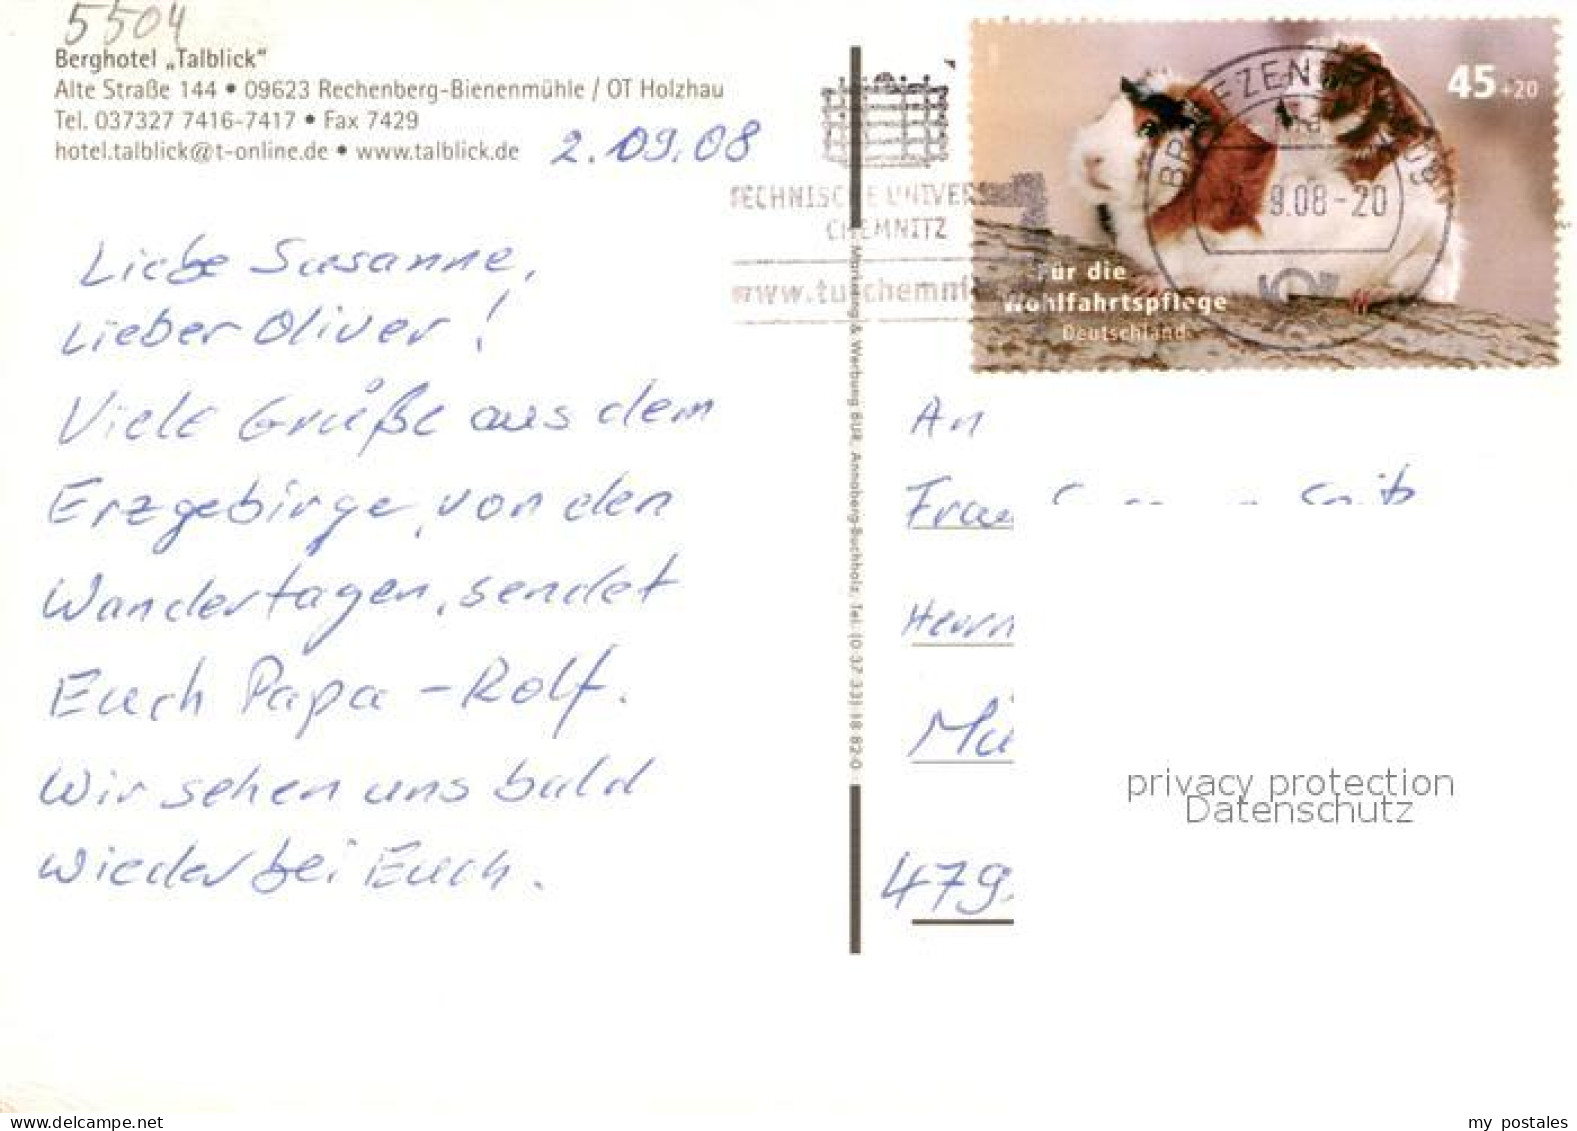 5504
Berghotel „Talblick“
Alte Straße 144 • 09623 Rechenberg-Bienenmühle / OT Holzhau
Tel. 037327 7416-7417 • Fax 7429
hotel.talblick@t-online.de • www.talblick.de
2.09.08
Liebe Susanne,
Lieber Oliver!
Viele Grüße aus dem
Erzgebirge, von den
Wandertagen, sendet
Euch Papa - Rolf.
Wir sehen uns bald
wieder bei Euch.
TECHNISCHE UNIVERS
CHEMNITZ
www.tu-chemni
Marketing & Werbung BUR, Annaberg-Buchholz, Tel. (0 37 33) 18 82-0
45+20
BRIEFZEN
9.08-20
Für die
Wohlfahrtspflege
Deutschland
An
Frau
Herrn
Mü
479
privacy protection
Datenschutz
www.delcampe.net
my_postales